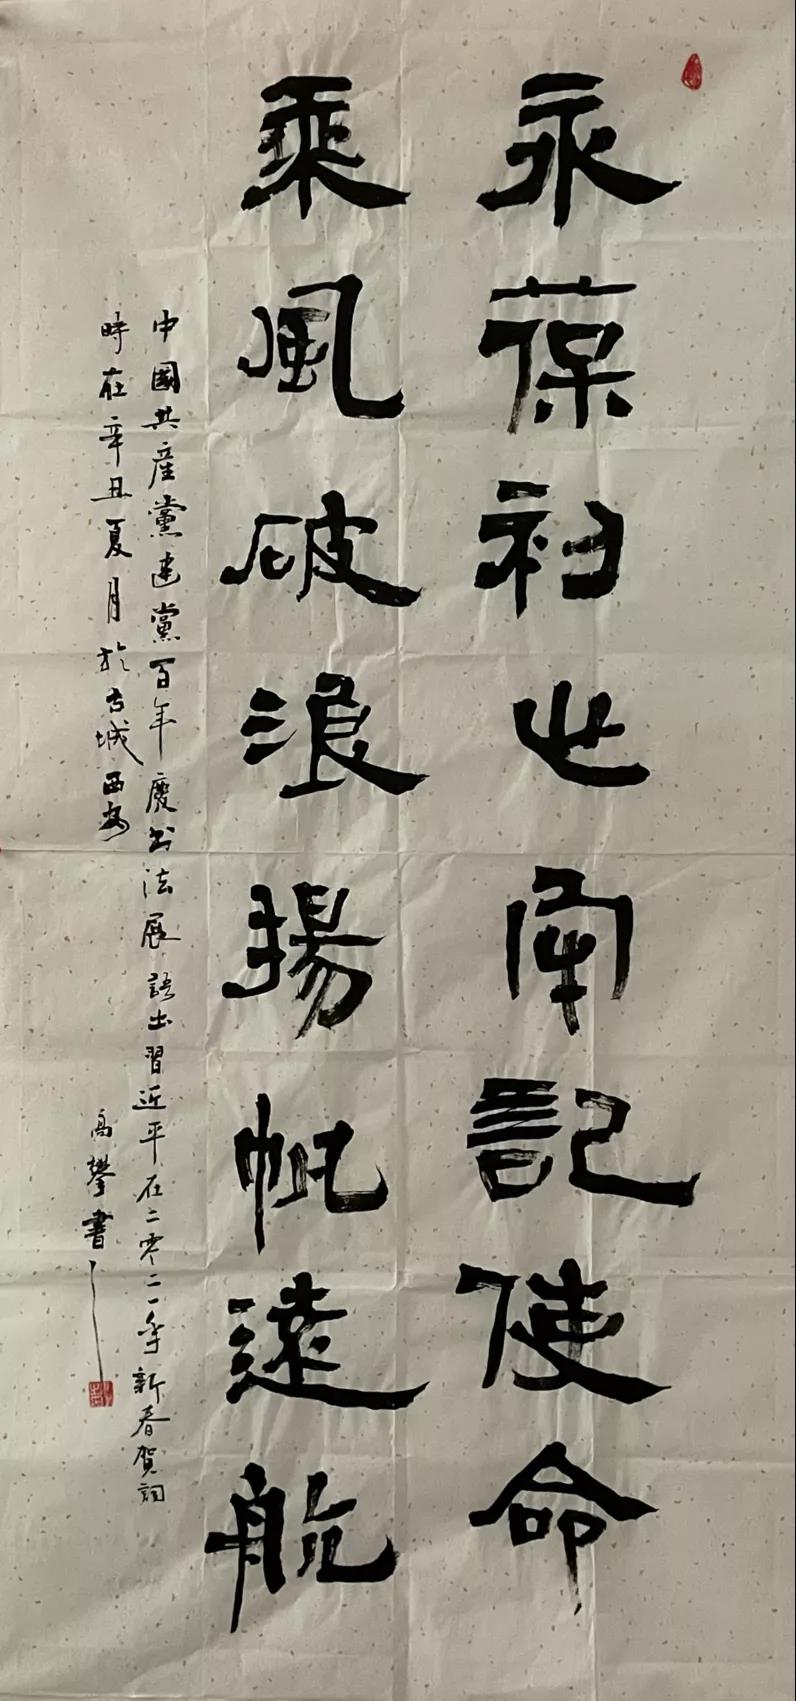 永葆初心牢記使命
乘風破浪揚帆遠航
中國共産黨建黨百年慶書法展語出習近平在二零二一年新春賀詞
時在辛丑夏月於古城西安
高攀書